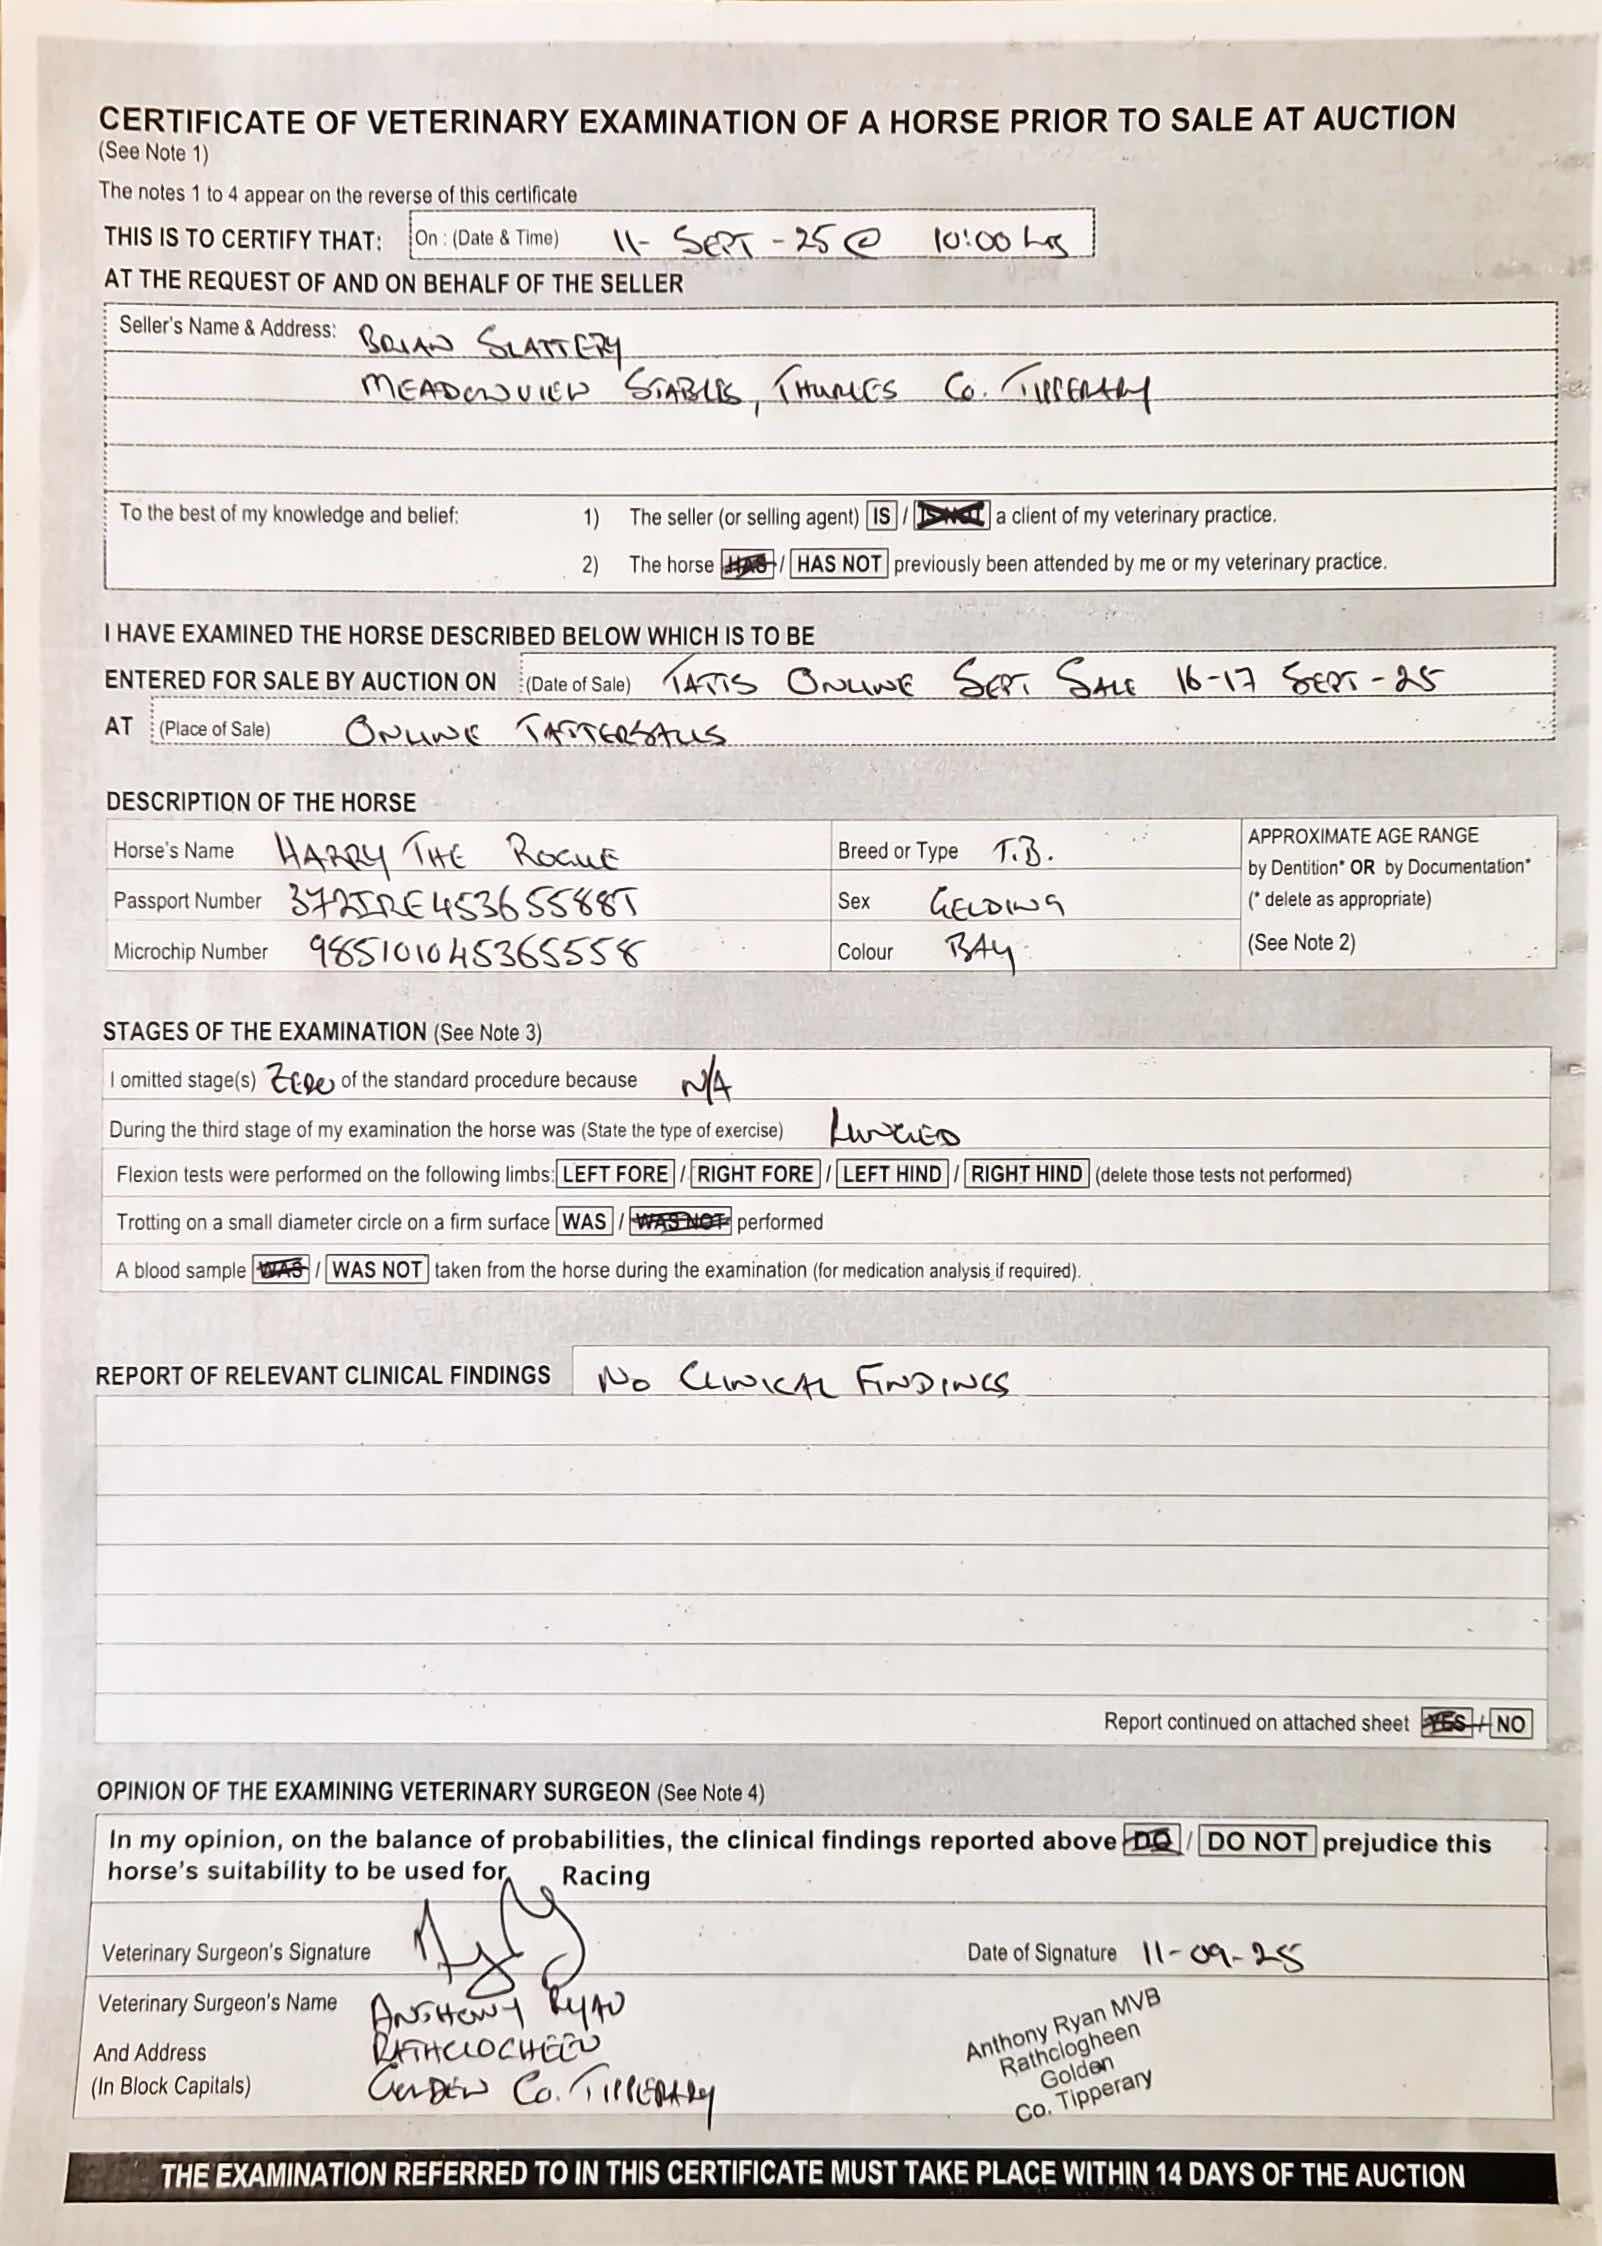 CERTIFICATE OF VETERINARY EXAMINATION OF A HORSE PRIOR TO SALE AT AUCTION
(See Note 1)
The notes 1 to 4 appear on the reverse of this certificate
THIS IS TO CERTIFY THAT: On : (Date & Time) 11- SEPT - 25 @ 10:00 hrs
AT THE REQUEST OF AND ON BEHALF OF THE SELLER
Seller's Name & Address: BRIAN SLATTERY
MEADOWVIEW STABLES, THURLES Co. TIPPERARY
To the best of my knowledge and belief: 1) The seller (or selling agent) IS / IS NOT a client of my veterinary practice.
2) The horse HAS / HAS NOT previously been attended by me or my veterinary practice.
I HAVE EXAMINED THE HORSE DESCRIBED BELOW WHICH IS TO BE
ENTERED FOR SALE BY AUCTION ON (Date of Sale) TATTS ONLINE SEPT SALE 16-17 SEPT - 25
AT (Place of Sale) ONLINE TATTERSALLS
DESCRIPTION OF THE HORSE
Horse's Name HARRY THE ROGUE Breed or Type T.B. APPROXIMATE AGE RANGE
by Dentition* OR by Documentation*
Passport Number 372IRE45365588T Sex GELDING (* delete as appropriate)
Microchip Number 985101045365558 Colour BAY (See Note 2)
STAGES OF THE EXAMINATION (See Note 3)
I omitted stage(s) ZERO of the standard procedure because N/A
During the third stage of my examination the horse was (State the type of exercise) LUNGED
Flexion tests were performed on the following limbs: LEFT FORE / RIGHT FORE / LEFT HIND / RIGHT HIND (delete those tests not performed)
Trotting on a small diameter circle on a firm surface WAS / WAS NOT performed
A blood sample WAS / WAS NOT taken from the horse during the examination (for medication analysis if required).
REPORT OF RELEVANT CLINICAL FINDINGS NO CLINICAL FINDINGS
Report continued on attached sheet YES / NO
OPINION OF THE EXAMINING VETERINARY SURGEON (See Note 4)
In my opinion, on the balance of probabilities, the clinical findings reported above DO / DO NOT prejudice this
horse's suitability to be used for Racing
Veterinary Surgeon's Signature Date of Signature 11-09-25
Veterinary Surgeon's Name ANTHONY RYAN
And Address RATHCLOGHEEN
(In Block Capitals) GOLDEN Co. TIPPERARY
Anthony Ryan MVB
Rathclogheen
Golden
Co. Tipperary
THE EXAMINATION REFERRED TO IN THIS CERTIFICATE MUST TAKE PLACE WITHIN 14 DAYS OF THE AUCTION